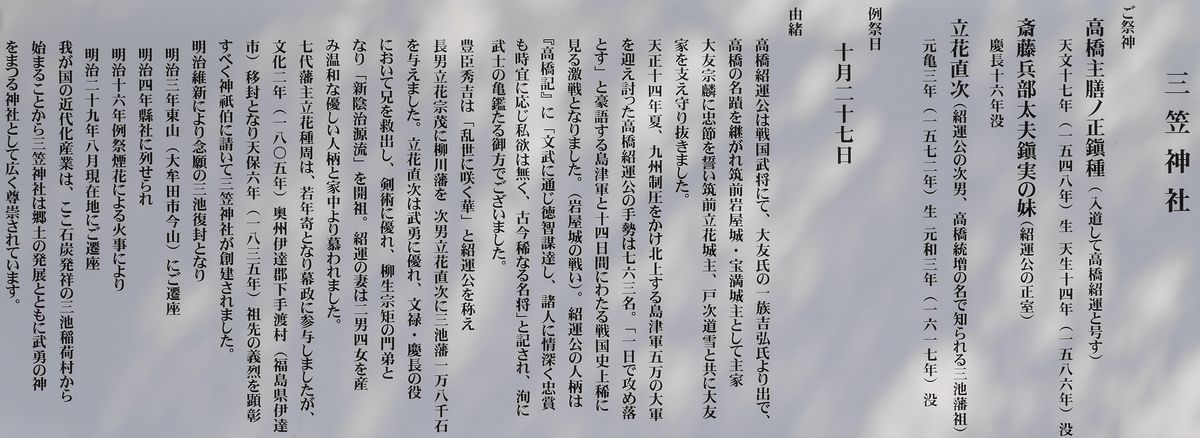 三笠神社
ご祭神
高橋主膳ノ正鎭種（入道して高橋紹運と号す）
天文十七年（一五四八年）生 天生十四年（一五八六年）没
斎藤兵部太夫鎭実の妹（紹運公の正室）
慶長十六年没
立花直次（紹運公の次男、高橋統増の名で知られる三池藩祖）
元亀三年（一五七二年）生 元和三年（一六一七年）没
例祭日
十月二十七日
由緒
高橋紹運公は戦国武将にて、大友氏の一族吉弘氏より出で、
高橋の名蹟を継がれ筑前岩屋城・宝満城主として主家
大友宗麟に忠節を誓い筑前立花城主、戸次道雪と共に大友
家を支え守り抜きました。
天正十四年夏、九州制圧をかけ北上する島津軍五万の大軍
を迎え討った高橋紹運公の手勢は七六三名。「一日で攻め落
とす」と豪語する島津軍と十四日間にわたる戦国史上稀に
見る激戦となりました。（岩屋城の戦い）。紹運公の人柄は
『高橋記』に「文武に通じ徳智謀達し、諸人に情深く忠賞
も時宜に応じ私欲は無く、古今稀なる名将」と記され、洵に
武士の亀鑑たる御方でございました。
豊臣秀吉は「乱世に咲く華」と紹運公を称え
長男立花宗茂に柳川藩を 次男立花直次に三池藩一万八千石
を与えました。立花直次は武勇に優れ、文禄・慶長の役
において兄を救出し、剣術に優れ、柳生宗矩の門弟と
なり「新陰治源流」を開祖。紹運の妻は二男四女を産
み温和な優しい人柄と家中より慕われました。
七代藩主立花種周は、若年寄となり幕政に参与しましたが、
文化二年（一八〇五年）奥州伊達郡下手渡村（福島県伊達
市）移封となり天保六年（一八三五年）祖先の義烈を顕彰
すべく神祇伯に請いて三笠神社が創建されました。
明治維新により念願の三池復封となり
明治三年東山（大牟田市今山）にご遷座
明治四年縣社に列せられ
明治十六年例祭煙花による火事により
明治二十九年八月現在地にご遷座
我が国の近代化産業は、ここ石炭発祥の三池稲荷村から
始まることから三笠神社は郷土の発展とともに武勇の神
をまつる神社として広く尊崇されています。